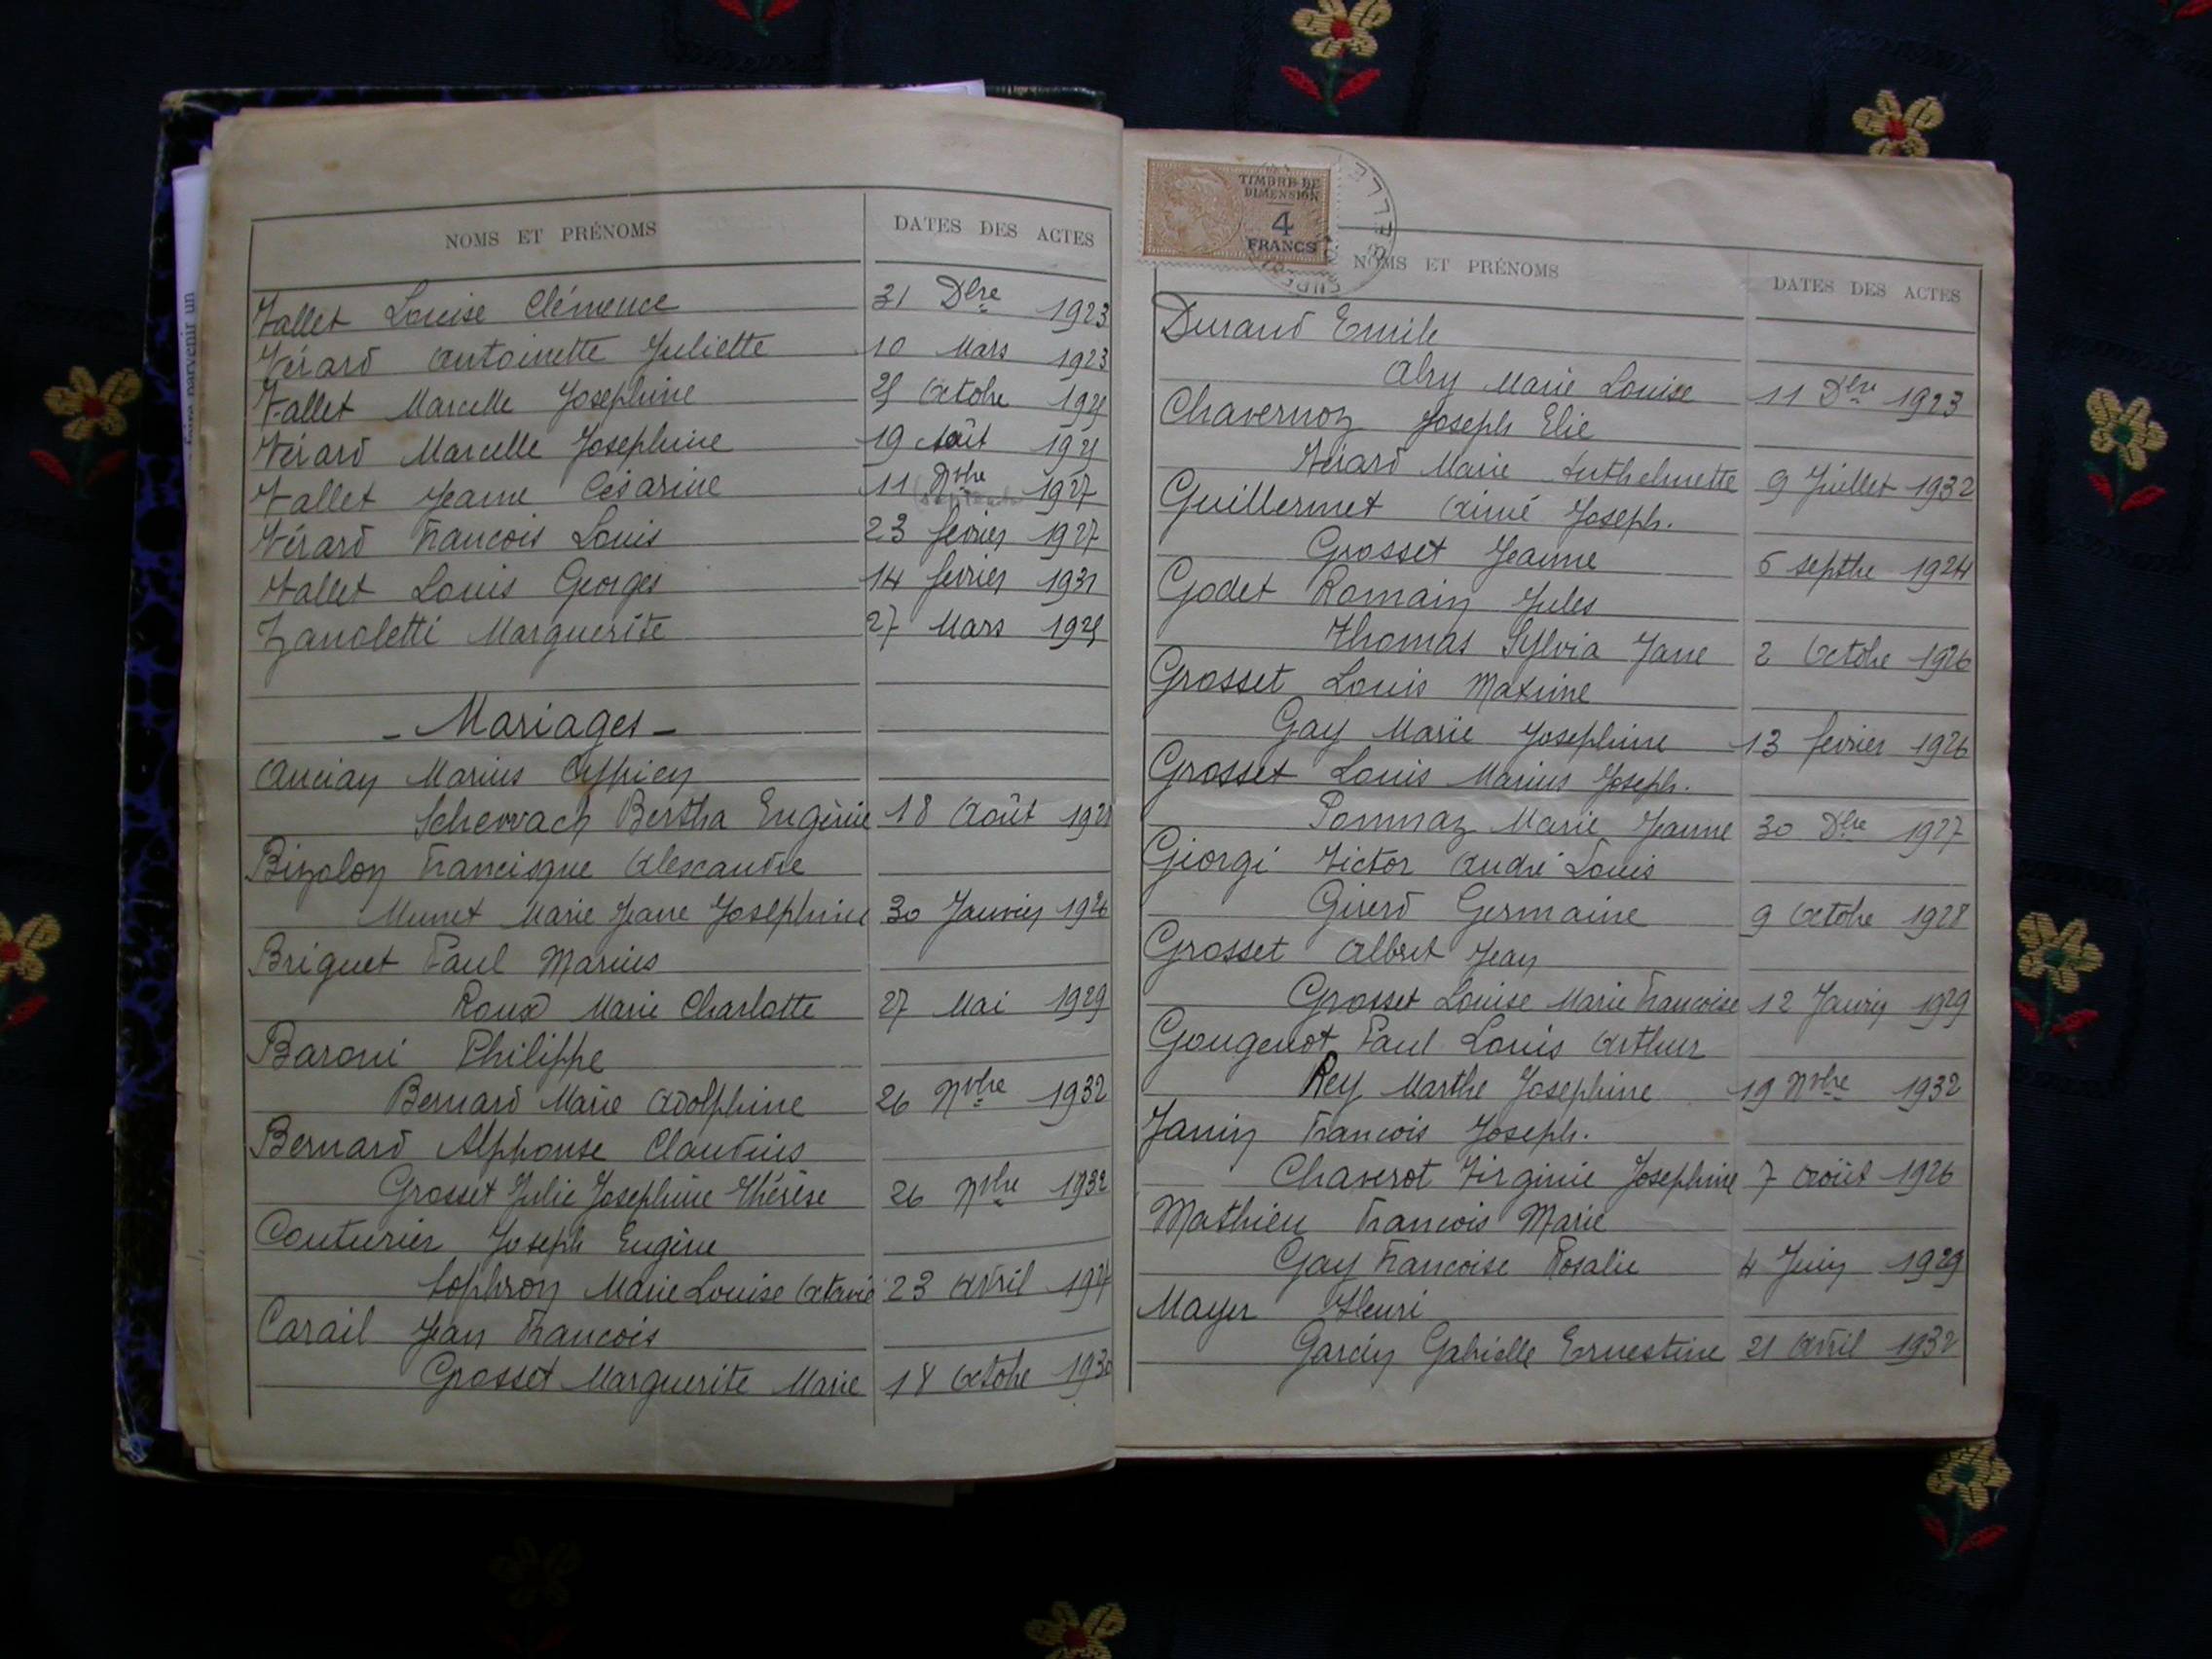 NOMS ET PRÉNOMS DATES DES ACTES
Vallet Louise Clémence 31 Dbre 1923
Vérard Antoinette Juliette 10 Mars 1923
Vallet Marcelle Josephine Octobre
Vérard Marcelle Josephine 19 Août
Vallet Jeanne Césarine 11 Nvbre 1927
Vérard Francois Louis 23 fevrier 1927
Vallet Louis Georges 14 fevrier 1931
Zanoletti Marguerite 27 Mars
- Mariages -
Ancian Marius Cyprien
Bertha Eugènie 18 Août
Bizolon Francisque Alexandre
Munet Marie Jeane Josephine 30 Janvier 1926
Briguet Paul Marius
Roux Marie Charlotte 27 Mai 1929
Baroni Philippe
Bernard Marie Adolphine 26 Nvbre 1932
Bernard Alphonse Claudius
Grosset Julie Josephine Thérèse 26 Nvbre 1932
Couturier Joseph Eugène
Marie Louise Octavie 23 Avril
Carail Jean Francois
Grosset Marguerite Marie 18 Octobre 1930
TIMBRE DE
DIMENSION
4
FRANCS
NOMS ET PRÉNOMS DATES DES ACTES
Durand Emile
Alry Marie Louise 11 Dbre 1923
Chavernoz Joseph Elie
Vérard Marie Anthelmette 9 Juillet 1932
Guillermet Aimé Joseph.
Grosset Jeanne 6 septbre 1924
Godet Romain Jules
Thomas Sylvia Jane 2 Octobre 1926
Grosset Louis Maxime
Gay Marie Josephine 13 fevrier 1926
Grosset Louis Marius Joseph.
Pommaz Marie Jeanne 30 Dbre 1927
Giorgi Victor André Louis
Girerd Germaine 9 Octobre 1928
Grosset Albert Jean
Grosset Louise Marie Francoise 12 Janvier 1929
Gougenot Paul Louis Arthur
Rey Marthe Josephine 19 Nvbre 1932
Janin Francois Joseph.
Chaverot Virginie Josephine 7 Août 1926
Mathieu Francois Marie
Gay Francoise Rosalie 4 Juin 1929
Mayer Henri
Gardin Gabrielle Ernestine 21 Avril 1932